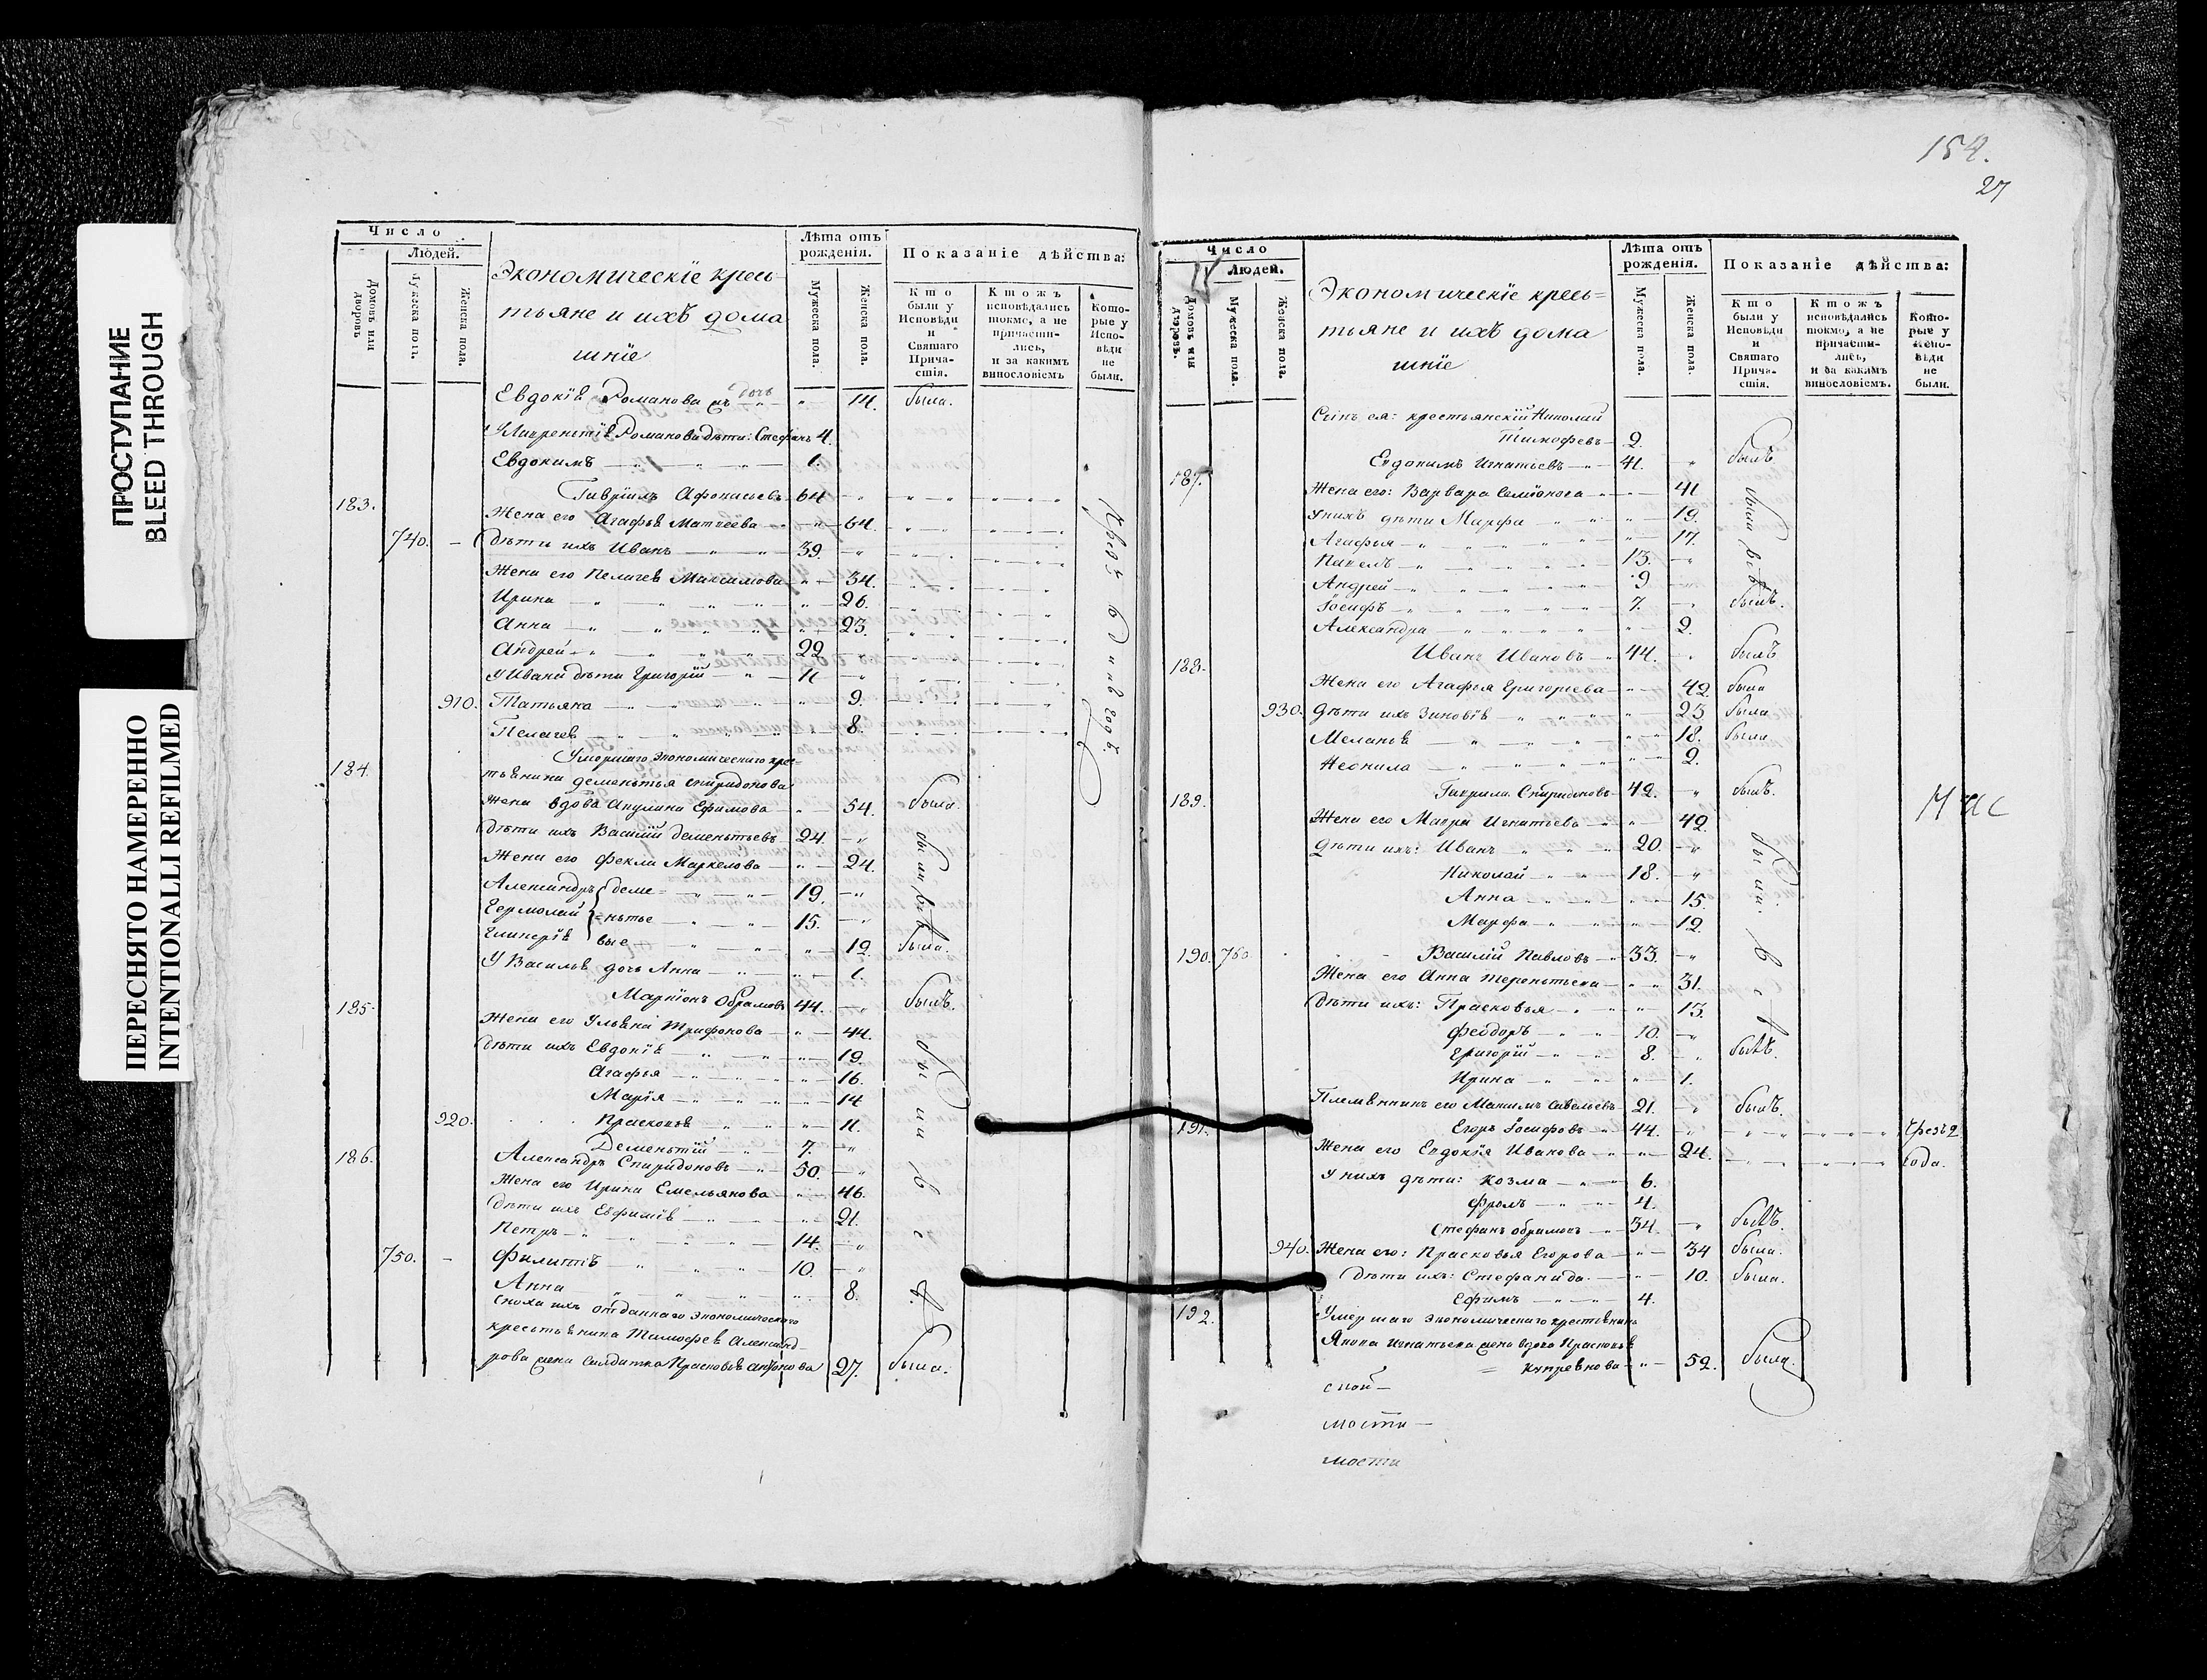 ПРОСТУПАНИЕ
BLEED THROUGH
ПЕРЕСНЯТО НАМЕРЕННО
INTENTIONALLI REFILMED
Число
Людей.
Домовъ или дворовъ
Мужеска пола.
Женска пола.
Экономическіе кресь
тьяне и ихъ дома
шніе
Лѣта отъ рожденія.
Мужеска пола.
Женска пола.
Показаніе дѣйства:
Кто были у Исповѣди и Святаго Причастія.
Ктожъ исповѣдались токмо, а не причастились, и за какимъ винословіемъ
Которые у Исповѣди не были.
Евдокіѣ Романова дочь " 14. была.
У Лаврентіѣ Романова дѣти: Стефанъ 4.
Евдокимъ 1.
183. Гавріилъ Афонасьевъ 64
Жена его Агафьѣ Матвеева 64.
740. Дѣти ихъ Иванъ 39.
Жена его Пелагеѣ Максимова 34.
Ирина 26.
Анна 23.
Андрей 22
У Ивана дѣти Григорій 11
910. Татьяна 9.
Пелагеѣ 8.
Чрезъ 6 динъ годъ.
184. Умершаго экономическаго крес-
тьѣнина Дементья Спиридонова
Жена вдова Акулина Ефимова 54. была.
Дѣти ихъ Василій Дементьевъ 24.
Жена его Фекла Маркелова 24.
Александръ деме- 19.
Ермолай =нтье 15.
Гликеріѣ вые 12. была.
были всѣ
У Васильѣ дочь Анна 1.
185. Маркіонъ Обрамовъ 44. былъ.
Жена его Ульѣна Трифонова 44.
Дѣти ихъ Евдокіѣ 19.
Агафья 16.
Марія 14
920. Прасковьѣ 11.
Дементій 7.
186. Александръ Спиридоновъ 50.
Жена его Ирина Емельянова 46.
Дѣти ихъ Евфиміѣ 21.
Петръ 14.
750. Филиппъ 10.
Анна 8.
были всѣ.
Сноха ихъ отданнаго экономическаго
крестьѣнина Тимофеѣ Александ-
рова жена салдатка Прасковьѣ Антонова 27. была.
154.
27
Число
Людей.
Домовъ или дворовъ.
Мужеска пола.
Женска пола.
Экономическіе кресь=
тьяне и ихъ дома
шніе
Лѣта отъ рожденія.
Мужеска пола.
Женска пола.
Показаніе дѣйства:
Кто были у Исповѣди и Святаго Причастія.
Ктожъ исповѣдались токмо, а не причастились, и за какимъ винословіемъ.
Которые у Исповѣди не были.
Сынъ ея: крестьянскій Николай
Тимофеевъ 2.
187. Евдокимъ Игнатьевъ 41. былъ
Жена его: Варвара Семіонова 41
У нихъ дѣти Марфа 19.
Агафья 17.
Павелъ 13.
Андрей 9
были всѣ
Іосифъ 7. былъ.
Александра 2.
188. Иванъ Ивановъ 44. былъ
Жена его Агафья Григорьева 42 была
930. Дѣти ихъ Зиновіѣ 23 была
Меланьѣ 18. была
Неонила 2.
189. Гаврила Спиридоновъ 42. былъ.
Жена его Мавра Игнатьева 42.
Дѣти ихъ: Иванъ 20.
Николай 18.
Анна 15.
Марфа 12.
190. 760 Василій Павловъ 33.
Жена его Анна Терентьева 31.
Дѣти ихъ: Прасковья 13.
Феодоръ 10.
были всѣ
Григорій 8. былъ.
Ирина 1.
Племѣнникъ его Максимъ Савельевъ 21. былъ.
191. Егоръ Іосифовъ 44. Чрезъ 2
Жена его Евдокія Иванова 24. года.
У нихъ дѣти: Козма 6.
Фролъ 4.
Стефанъ Обрамовъ 34. былъ.
940. Жена его: Прасковья Егорова 34 была.
Дѣти ихъ: Стефанида 10. была.
Ефимъ 4.
192. Умершаго экономическаго крестьянина
Якова Игнатьева жена вдова Прасковьѣ
Купреѣнова 52. была.
мости
мости